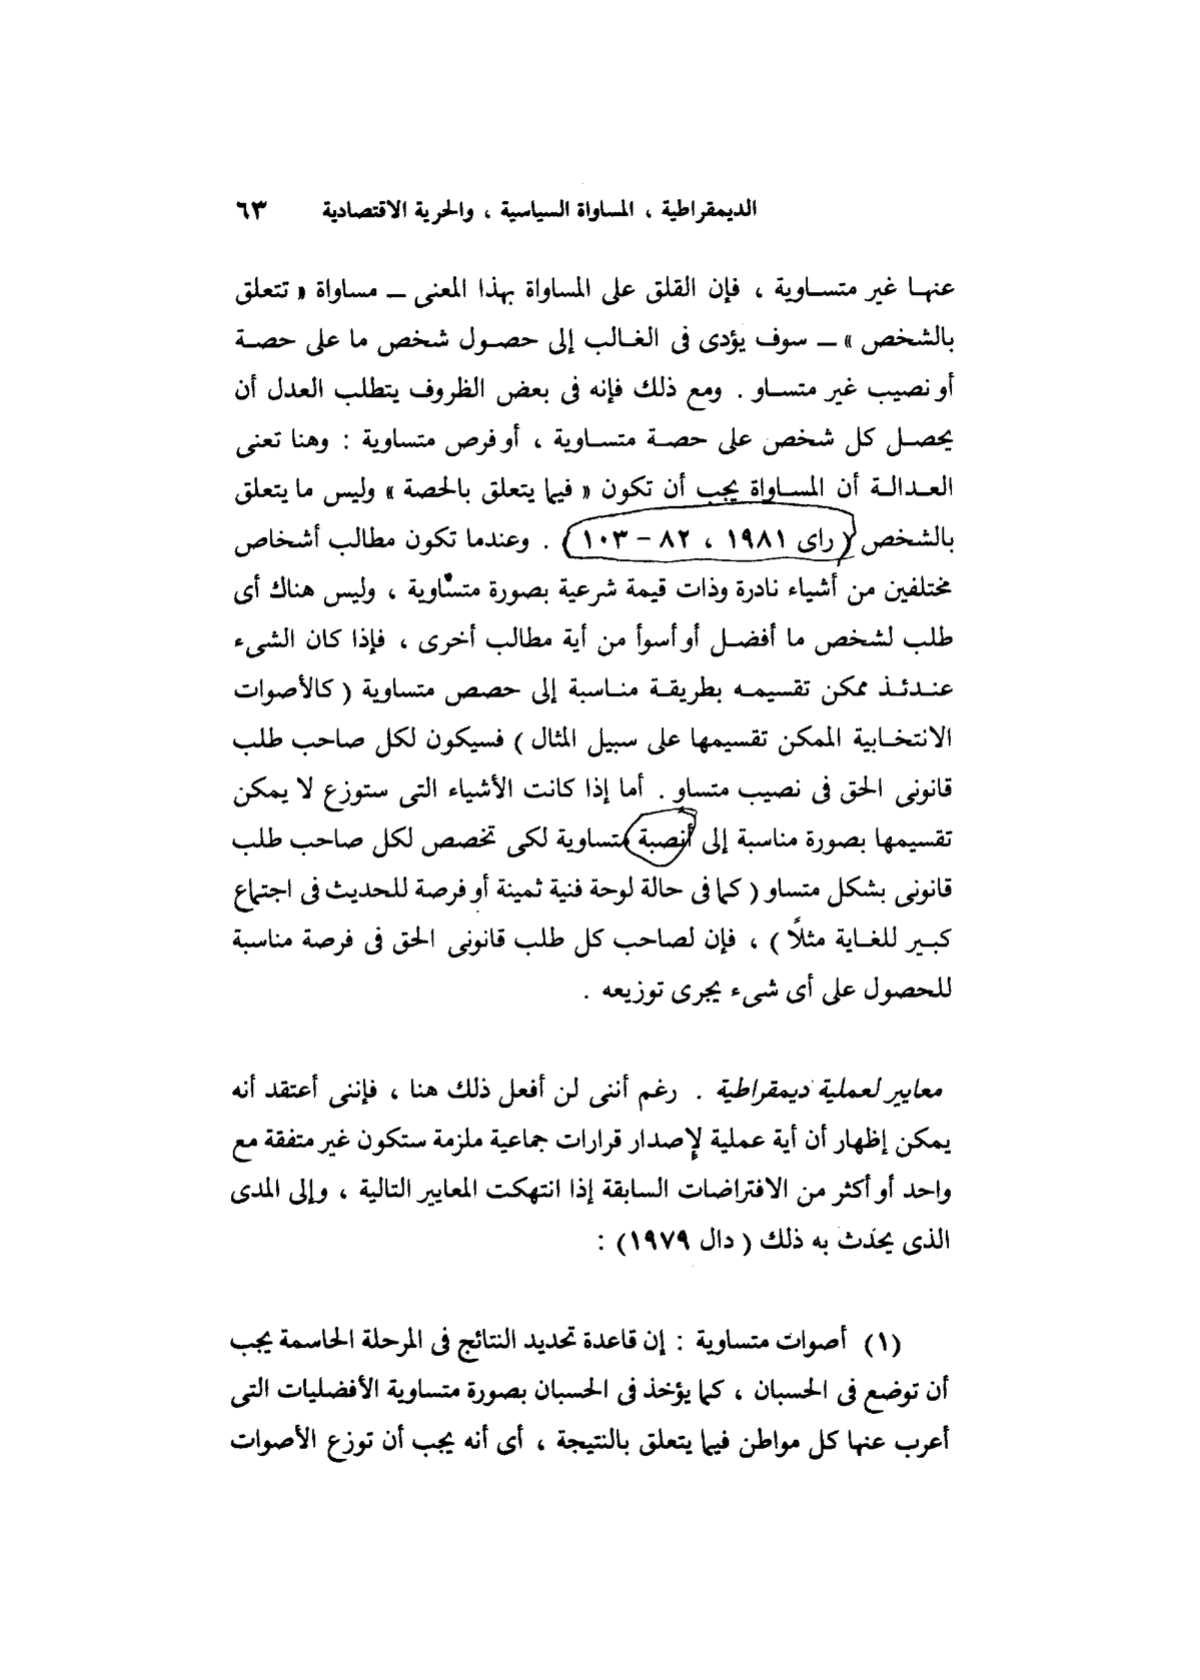 الديمقراطية ، المساواة السياسية ، والحرية الاقتصادية ٦٣
عنها غير متساوية ، فإن القلق على المساواة بهذا المعنى – مساواة « تتعلق
بالشخص » – سوف يؤدى فى الغالب إلى حصول شخص ما على حصة
أو نصيب غير متساو . ومع ذلك فإنه فى بعض الظروف يتطلب العدل أن
يحصل كل شخص على حصة متساوية ، أو فرص متساوية : وهنا تعنى
العدالة أن المساواة يجب أن تكون « فيما يتعلق بالحصة » وليس ما يتعلق
بالشخص ( راى ١٩٨١ ، ٨٢ – ١٠٣ ) . وعندما تكون مطالب أشخاص
مختلفين من أشياء نادرة وذات قيمة شرعية بصورة متساوية ، وليس هناك أى
طلب لشخص ما أفضل أو أسوأ من أية مطالب أخرى ، فإذا كان الشىء
عندئذ ممكن تقسيمه بطريقة مناسبة إلى حصص متساوية ( كالأصوات
الانتخابية الممكن تقسيمها على سبيل المثال ) فسيكون لكل صاحب طلب
قانونى الحق فى نصيب متساو . أما إذا كانت الأشياء التى ستوزع لا يمكن
تقسيمها بصورة مناسبة إلى أنصبة متساوية لكى تخصص لكل صاحب طلب
قانونى بشكل متساو ( كما فى حالة لوحة فنية ثمينة أو فرصة للحديث فى اجتماع
كبير للغاية مثلاً ) ، فإن لصاحب كل طلب قانونى الحق فى فرصة مناسبة
للحصول على أى شىء يجرى توزيعه .
معايير لعملية ديمقراطية . رغم أننى لن أفعل ذلك هنا ، فإننى أعتقد أنه
يمكن إظهار أن أية عملية لإصدار قرارات جماعية ملزمة ستكون غير متفقة مع
واحد أو أكثر من الافتراضات السابقة إذا انتهكت المعايير التالية ، وإلى المدى
الذى يحدث به ذلك ( دال ١٩٧٩ ) :
( ١ ) أصوات متساوية : إن قاعدة تحديد النتائج فى المرحلة الحاسمة يجب
أن توضع فى الحسبان ، كما يؤخذ فى الحسبان بصورة متساوية الأفضليات التى
أعرب عنها كل مواطن فيما يتعلق بالنتيجة ، أى أنه يجب أن توزع الأصوات